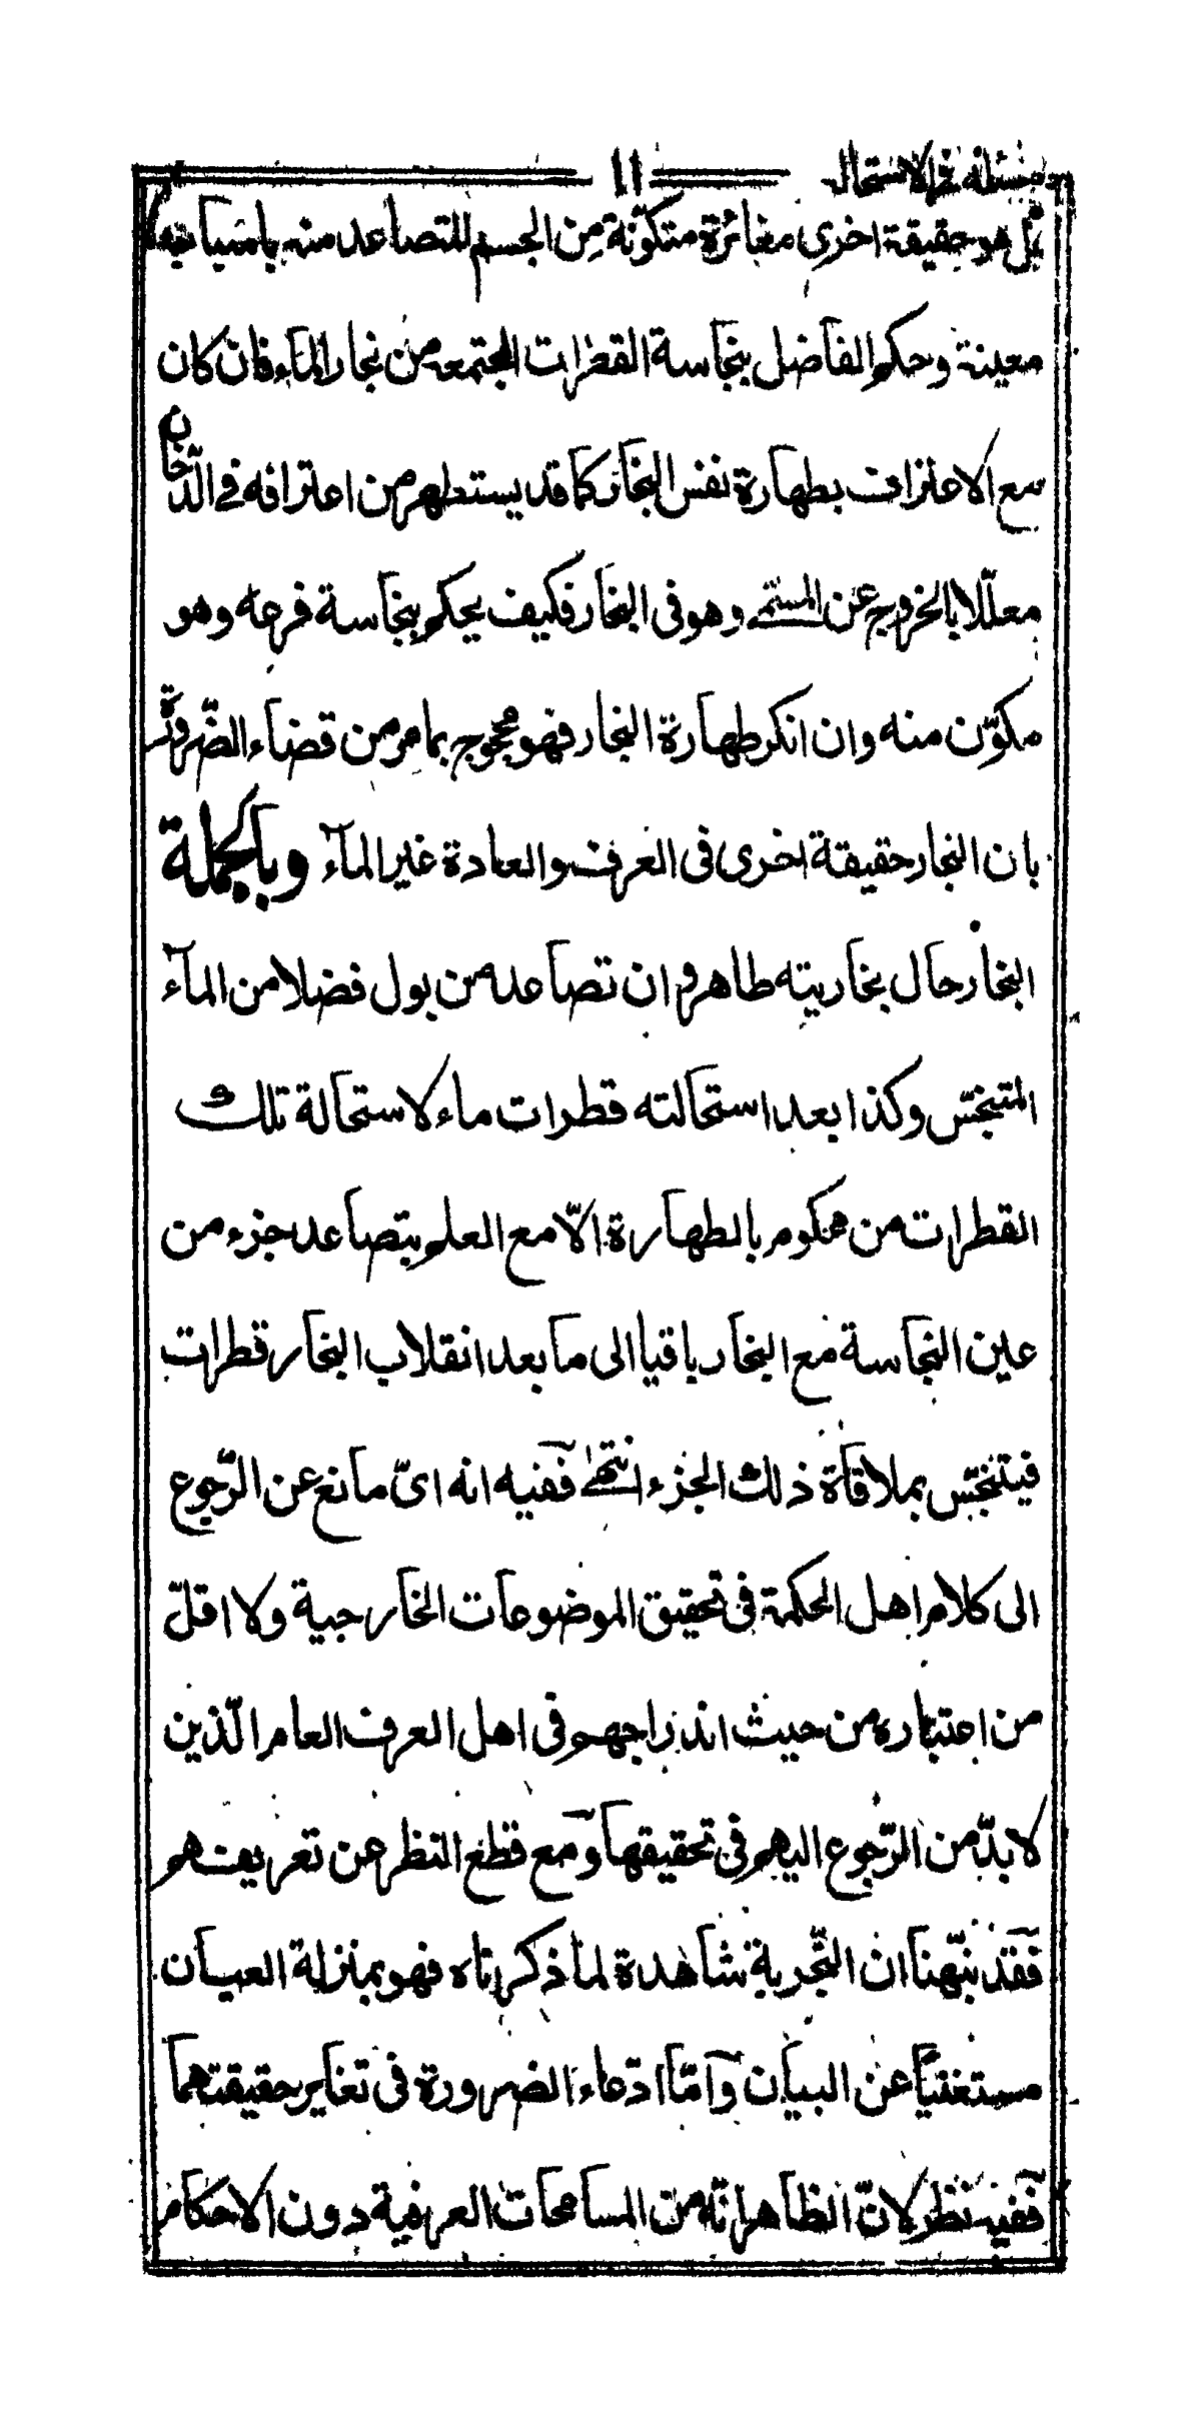 مسئلة في الاستحالة ١١
بل هو حقيقة اخرى مغائرة متكوّنة من الجسم المتصاعد منه باسباب
معينة وحكم الفاضل بنجاسة القطرات المجتمعه من بخار الماء فان كان
مع الاعتراف بطهارة نفس البخار كما قد يستظهر من اعترافه في الدّخان
معلّلا بالخروج عن المسمّى وهو في البخار فكيف يحكم بنجاسة فرعه وهو
مكوّن منه وان انكر طهارة البخار فهو محجوج بما مر من قضاء الضّرورة
بان البخار حقيقة اخرى في العرف والعادة غير المآء وبالجملة
البخار حال بخاريته طاهر وان تصاعد من بول فضلا من المآء
المتنجّس وكذا بعد استحالته قطرات ماء لاستحالة تلك
القطرات من محكوم بالطهارة الّا مع العلم بتصاعد جزء من
عين النجاسة مع البخار باقيا الى ما بعد انقلاب البخار قطرات
فيتنجّس بملاقاة ذلك الجزء انتهى ففيه انه اىّ مانع عن الرّجوع
الى كلام اهل الحكمة في تحقيق الموضوعات الخارجية ولا اقلّ
من اعتباره من حيث اندراجهم في اهل العرف العام الّذين
لا بدّ من الرّجوع اليهم في تحقيقها ومع قطع النظر عن تعريفهم
فقد نبّهنا ان التّجربة شاهدة لما ذكرناه فهو بمنزلة العيان
مستغنياً عن البيان وامّا ادّعاء الضرورة في تغاير حقيقتهما
ففيه نظر لانّ الظاهر انّه من المسامحات العرفية دون الاحكام